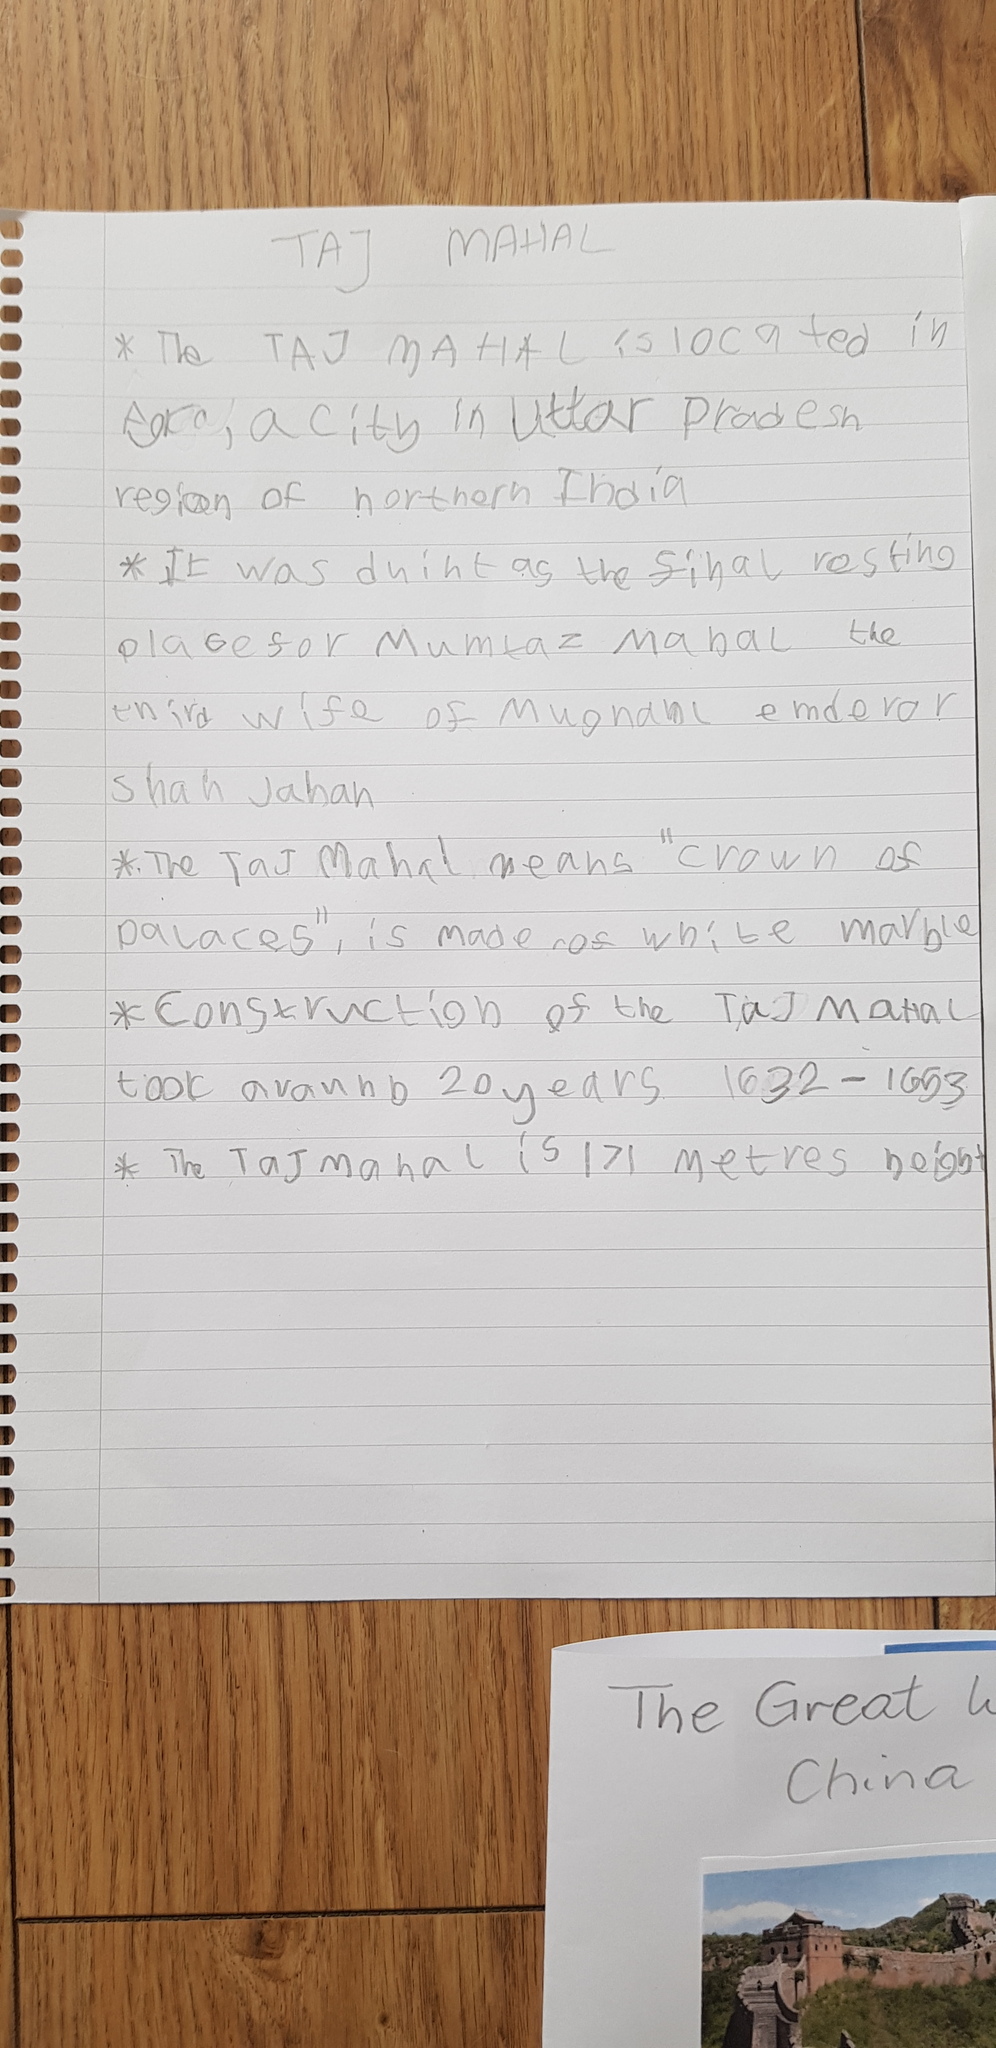 TAJ MAHAL
* The TAJ MAHAL is located in
Agra, a city in Uttar Pradesh
region of northern India
* It was duint as the final resting
place for Mumtaz Mahal the
third wife of Mughahl emderor
Shah Jahan
* The Taj Mahal means "crown of
palaces", is made of white marble
* Construction of the TaJ MaHal
took araunb 20 years 1632 - 1653
* The TaJ mahal is 171 metres height
The Great
China